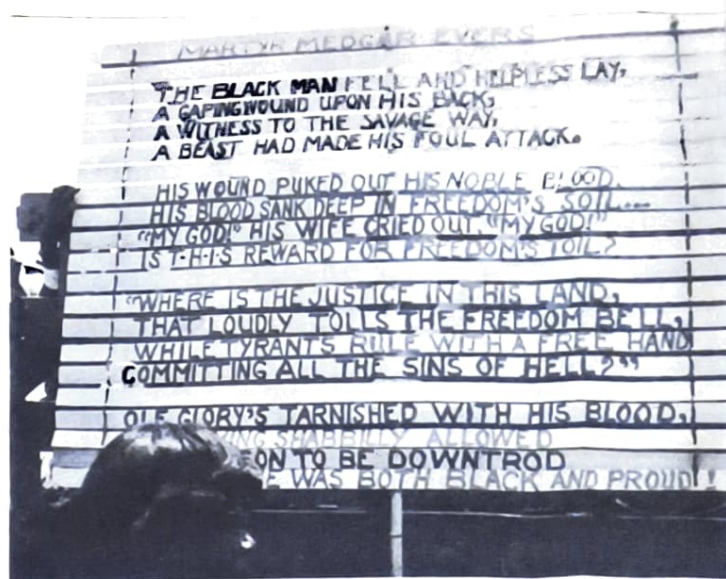 MARTYR MEDGAR EVERS
THE BLACK MAN FELL AND HELPLESS LAY,
A GAPING WOUND UPON HIS BACK,
A WITNESS TO THE SAVAGE WAY,
A BEAST HAD MADE HIS FOUL ATTACK.
HIS WOUND PUKED OUT HIS NOBLE BLOOD.
HIS BLOOD SANK DEEP IN FREEDOM'S SOIL...
"MY GOD!" HIS WIFE CRIED OUT, "MY GOD!"
IS T-H-I-S REWARD FOR FREEDOM'S TOIL?
"WHERE IS THE JUSTICE IN THIS LAND,
THAT LOUDLY TOLLS THE FREEDOM BELL,
WHILE TYRANTS RULE WITH A FREE HAND
COMMITTING ALL THE SINS OF HELL?"
OLE GLORY'S TARNISHED WITH HIS BLOOD,
SHABBILY ALLOWED
ON TO BE DOWNTROD
WAS BOTH BLACK AND PROUD!